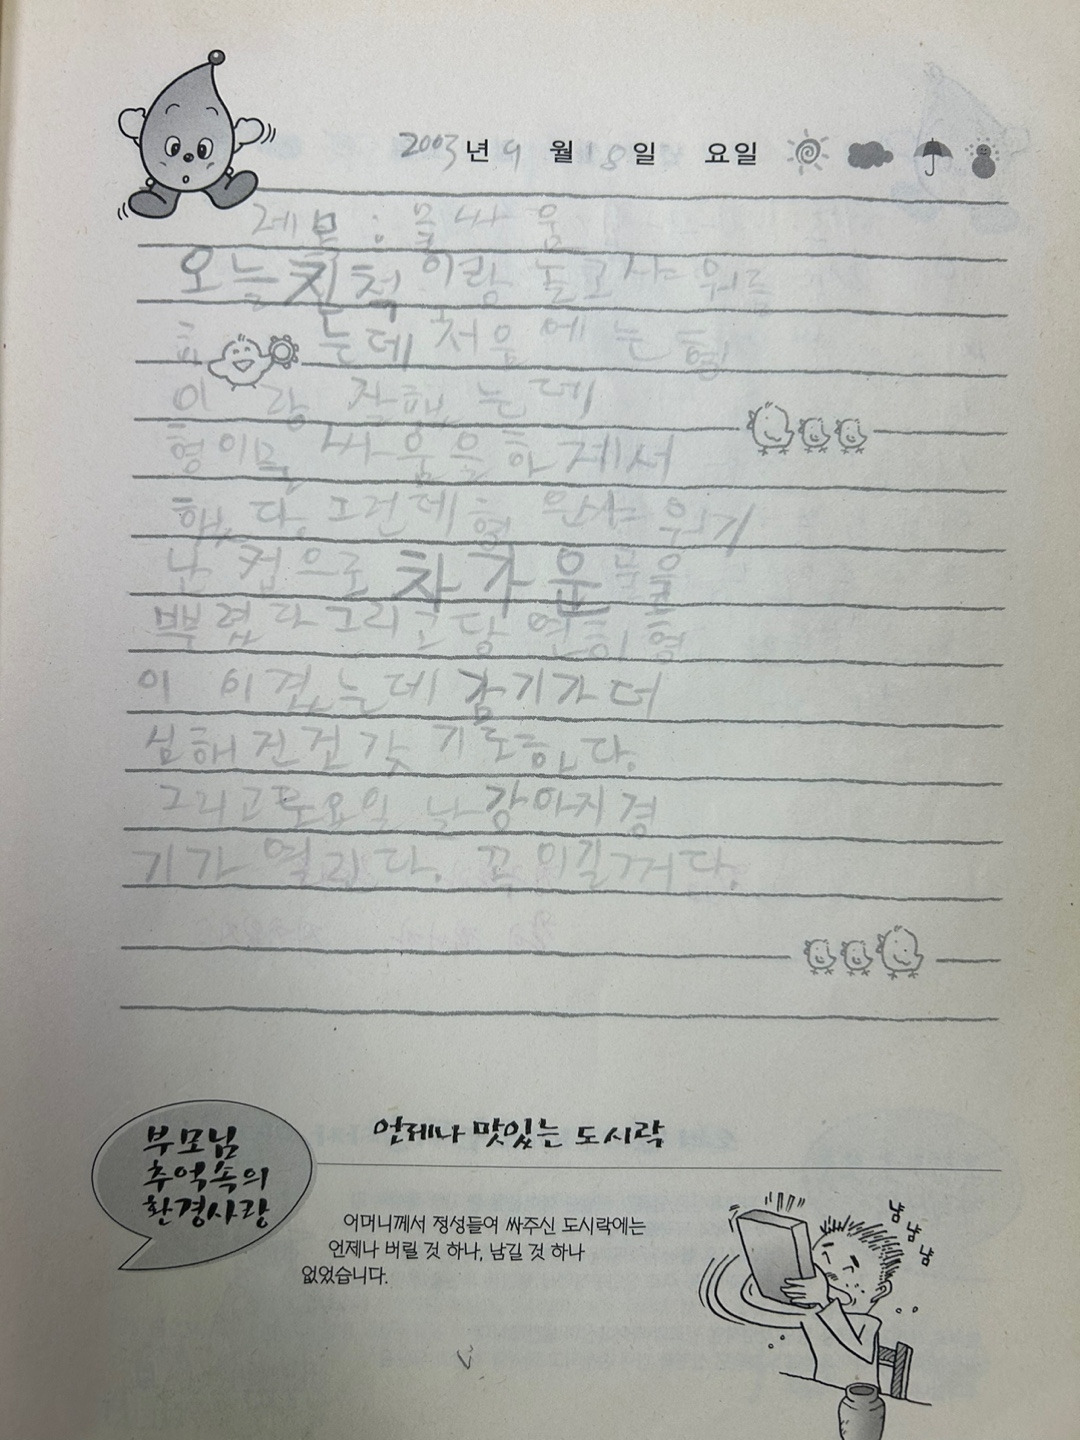 2003년 9월 18일 요일
제목 : 물싸움
오늘 친척이랑 놀고 샤워를
하 는데 처음에는 형
이 랑 잘했는데
형이 물싸움을 하제서
했다. 그런데 형 완샤워기
난 컵으로 차가운 물을
뿌렸다 그리고 당연히 형
이 이겼는데 감기가 더
심해진건 같기도한다.
그리고 토요일 날 강아지 경
기가 열린다. 꼭 이길거다.
언제나 맛있는 도시락
부모님
추억속의
환경사랑
어머니께서 정성들여 싸주신 도시락에는
언제나 버릴 것 하나, 남길 것 하나
없었습니다.
냠
냠
냠